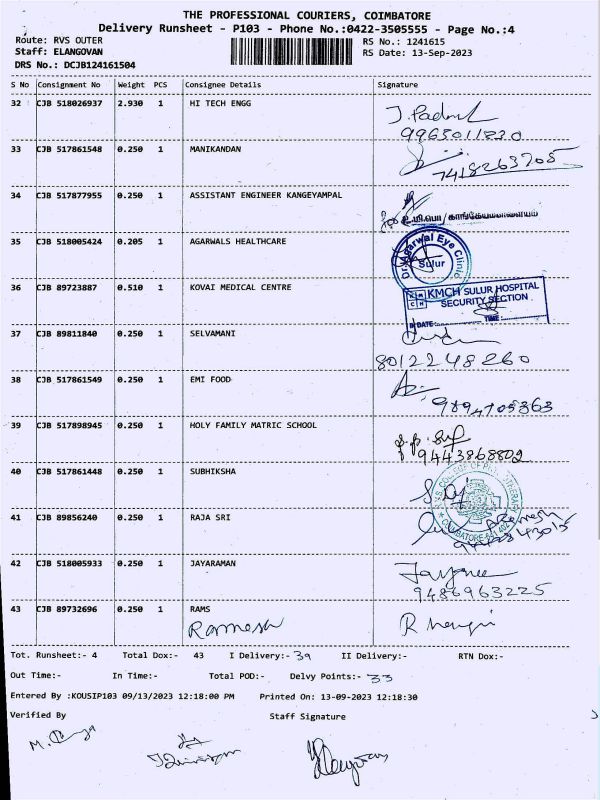 THE PROFESSIONAL COURIERS, COIMBATORE
Delivery Runsheet - P103 - Phone No.:0422-3505555 - Page No.:4
Route: RVS OUTER
RS No.: 1241615
Staff: ELANGOVAN
RS Date: 13-Sep-2023
DRS No.: DCJB124161504
S No Consignment No Weight PCS Consignee Details Signature
32 CJB 518026937 2.930 1 HI TECH ENGG
9965011830
33 CJB 517861548 0.250 1 MANIKANDAN
7418263705
34 CJB 517877955 0.250 1 ASSISTANT ENGINEER KANGEYAMPAL
35 CJB 518005424 0.205 1 AGARWALS HEALTHCARE
Dr. Agarwal Eye Clinic
Sulur
36 CJB 89723887 0.510 1 KOVAI MEDICAL CENTRE
KMCH SULUR HOSPITAL
SECURITY SECTION
DATE: TIME:
37 CJB 89811840 0.250 1 SELVAMANI
8012248260
38 CJB 517861549 0.250 1 EMI FOOD
9894705363
39 CJB 517898945 0.250 1 HOLY FAMILY MATRIC SCHOOL
9443868802
40 CJB 517861448 0.250 1 SUBHIKSHA
41 CJB 89856240 0.250 1 RAJA SRI
42 CJB 518005933 0.250 1 JAYARAMAN
9486963225
43 CJB 89732696 0.250 1 RAMS
Ramesh
Tot. Runsheet:- 4 Total Dox:- 43 I Delivery:- 39 II Delivery:- RTN Dox:-
Out Time:- In Time:- Total POD:- Delvy Points:- 33
Entered By :KOUSIP103 09/13/2023 12:18:00 PM Printed On: 13-09-2023 12:18:30
Verified By Staff Signature